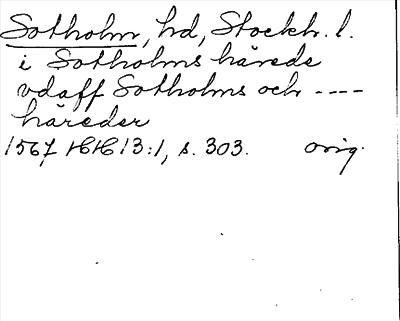 Sotholm, hd, Stockh. l.
i Sotholms härede
vdaff Sotholms och ----
häreder
1567 HH 13:1, s. 303. orig.